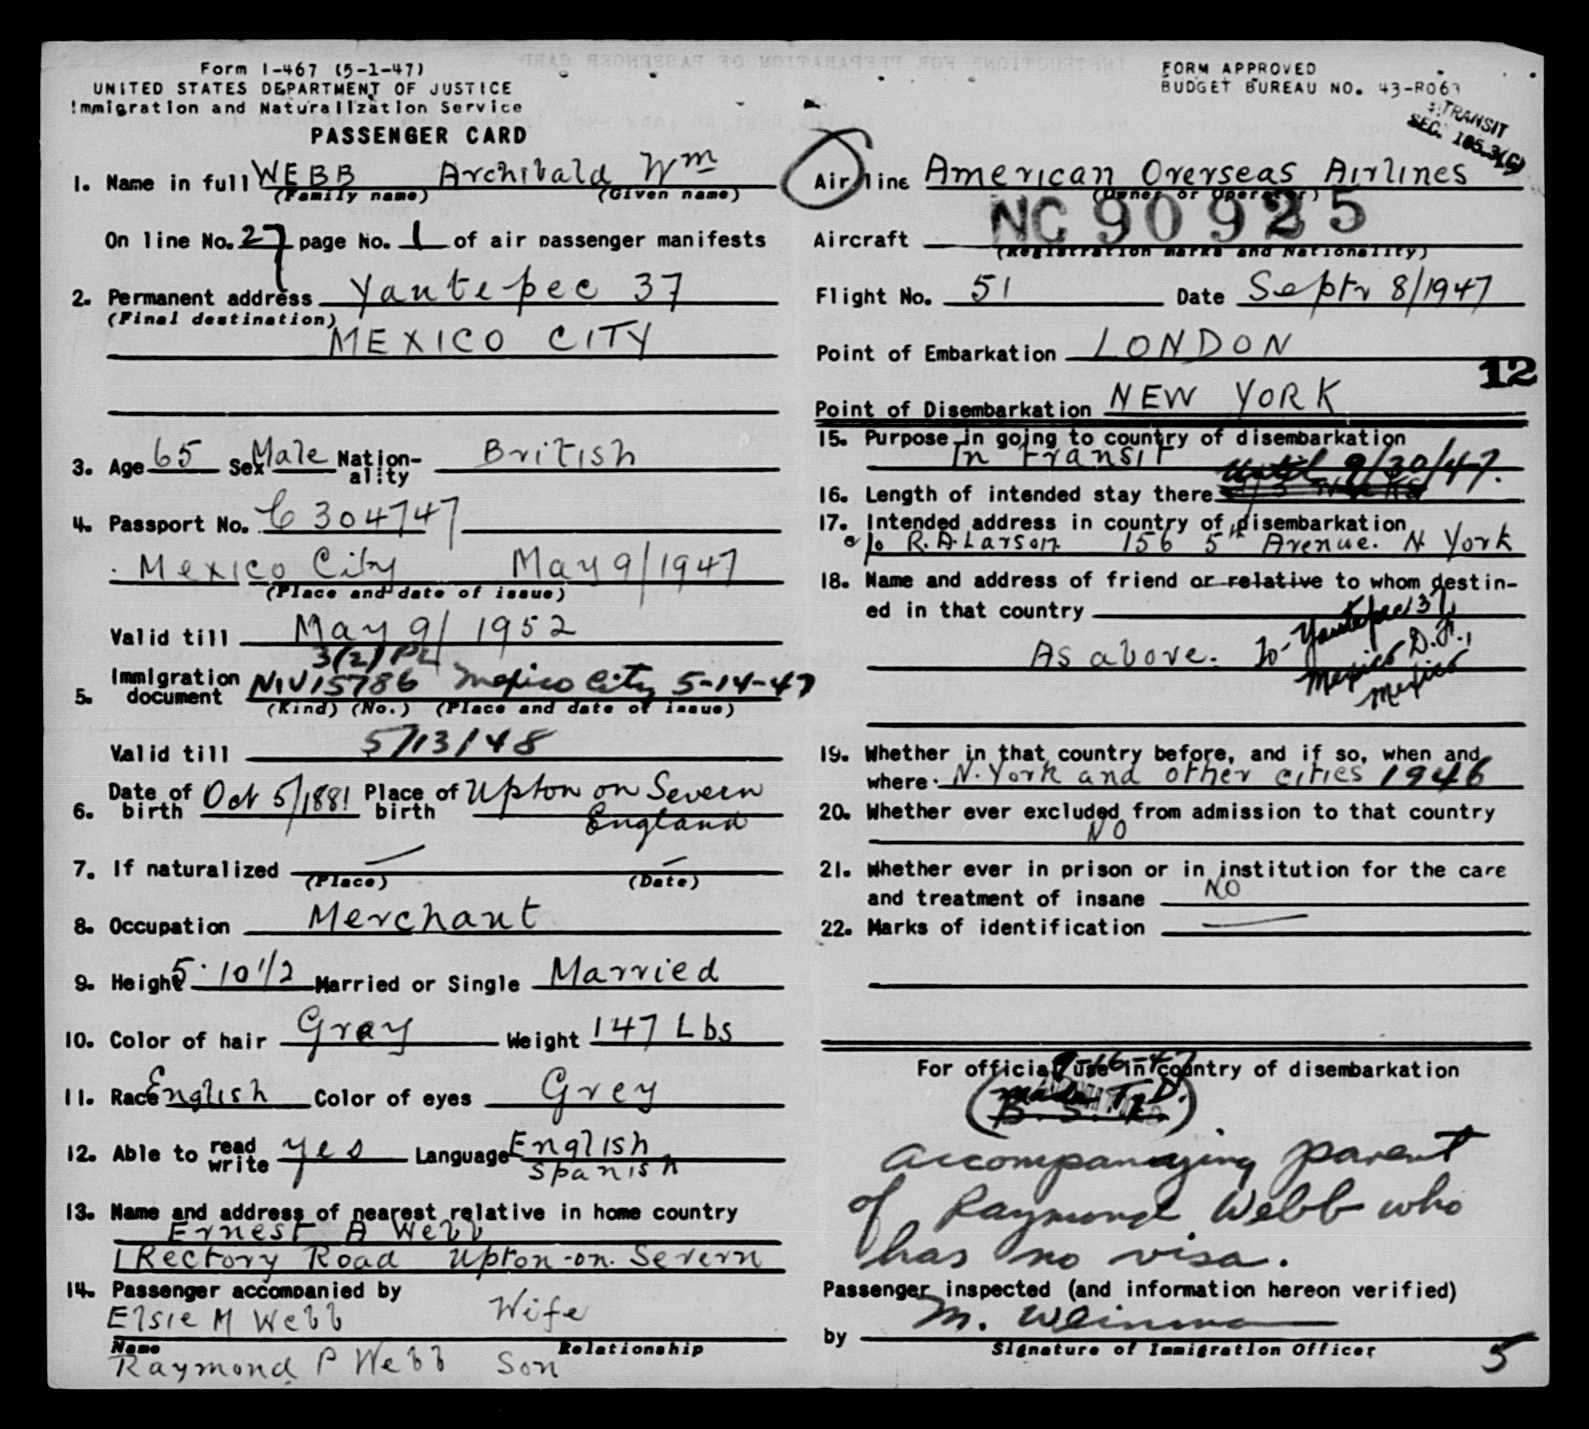 Form I-467 (5-1-47)
UNITED STATES DEPARTMENT OF JUSTICE
Immigration and Naturalization Service
PASSENGER CARD
1. Name in full WEBB Archibald Wm
(Family name) (Given name)
On line No. 27 page No. 1 of air passenger manifests
2. Permanent address Yautepec 37
(Final destination)
MEXICO CITY
3. Age 65 Sex Male Nation-ality British
4. Passport No. C 304747
Mexico City May 9/1947
(Place and date of issue)
Valid till May 9/ 1952
3(2) PL
5. Immigration document NIV15786 Mexico City 5-14-47
(Kind) (No.) (Place and date of issue)
Valid till 5/13/48
6. Date of birth Oct 5/1881 Place of birth Upton on Severn
England
7. If naturalized
(Place) (Date)
8. Occupation Merchant
9. Height 5' 10 1/2 Married or Single Married
10. Color of hair Gray Weight 147 Lbs
11. Race English Color of eyes Grey
12. Able to read write yes Language English
Spanish
13. Name and address of nearest relative in home country
Ernest A Webb
1 Rectory Road Upton-on. Severn
14. Passenger accompanied by
Elsie M Webb Wife
Name Relationship
Raymond P Webb Son
FORM APPROVED
BUDGET BUREAU NO. 43-R063
TRANSIT
SEC. 105.3(C)
Air line American Overseas Airlines
(Owner or Operator)
Aircraft NC 90925
(Registration marks and Nationality)
Flight No. 51 Date Septr 8/1947
Point of Embarkation LONDON
12
Point of Disembarkation NEW YORK
15. Purpose in going to country of disembarkation
In transit
16. Length of intended stay there until 9/30/47.
17. Intended address in country of disembarkation
c/o R.A. Larson 156 5th Avenue. N York
18. Name and address of friend or relative to whom destin-
ed in that country
As above. To- Yautepec 37,
Mexico D.F.,
Mexico
19. Whether in that country before, and if so, when and
where. N. York and other cities 1946
20. Whether ever excluded from admission to that country
NO
21. Whether ever in prison or in institution for the care
and treatment of insane NO
22. Marks of identification
For official use in country of disembarkation
9-16-47
accompanying parent
of Raymond Webb who
has no visa.
Passenger inspected (and information hereon verified)
by M.
Signature of Immigration Officer
5